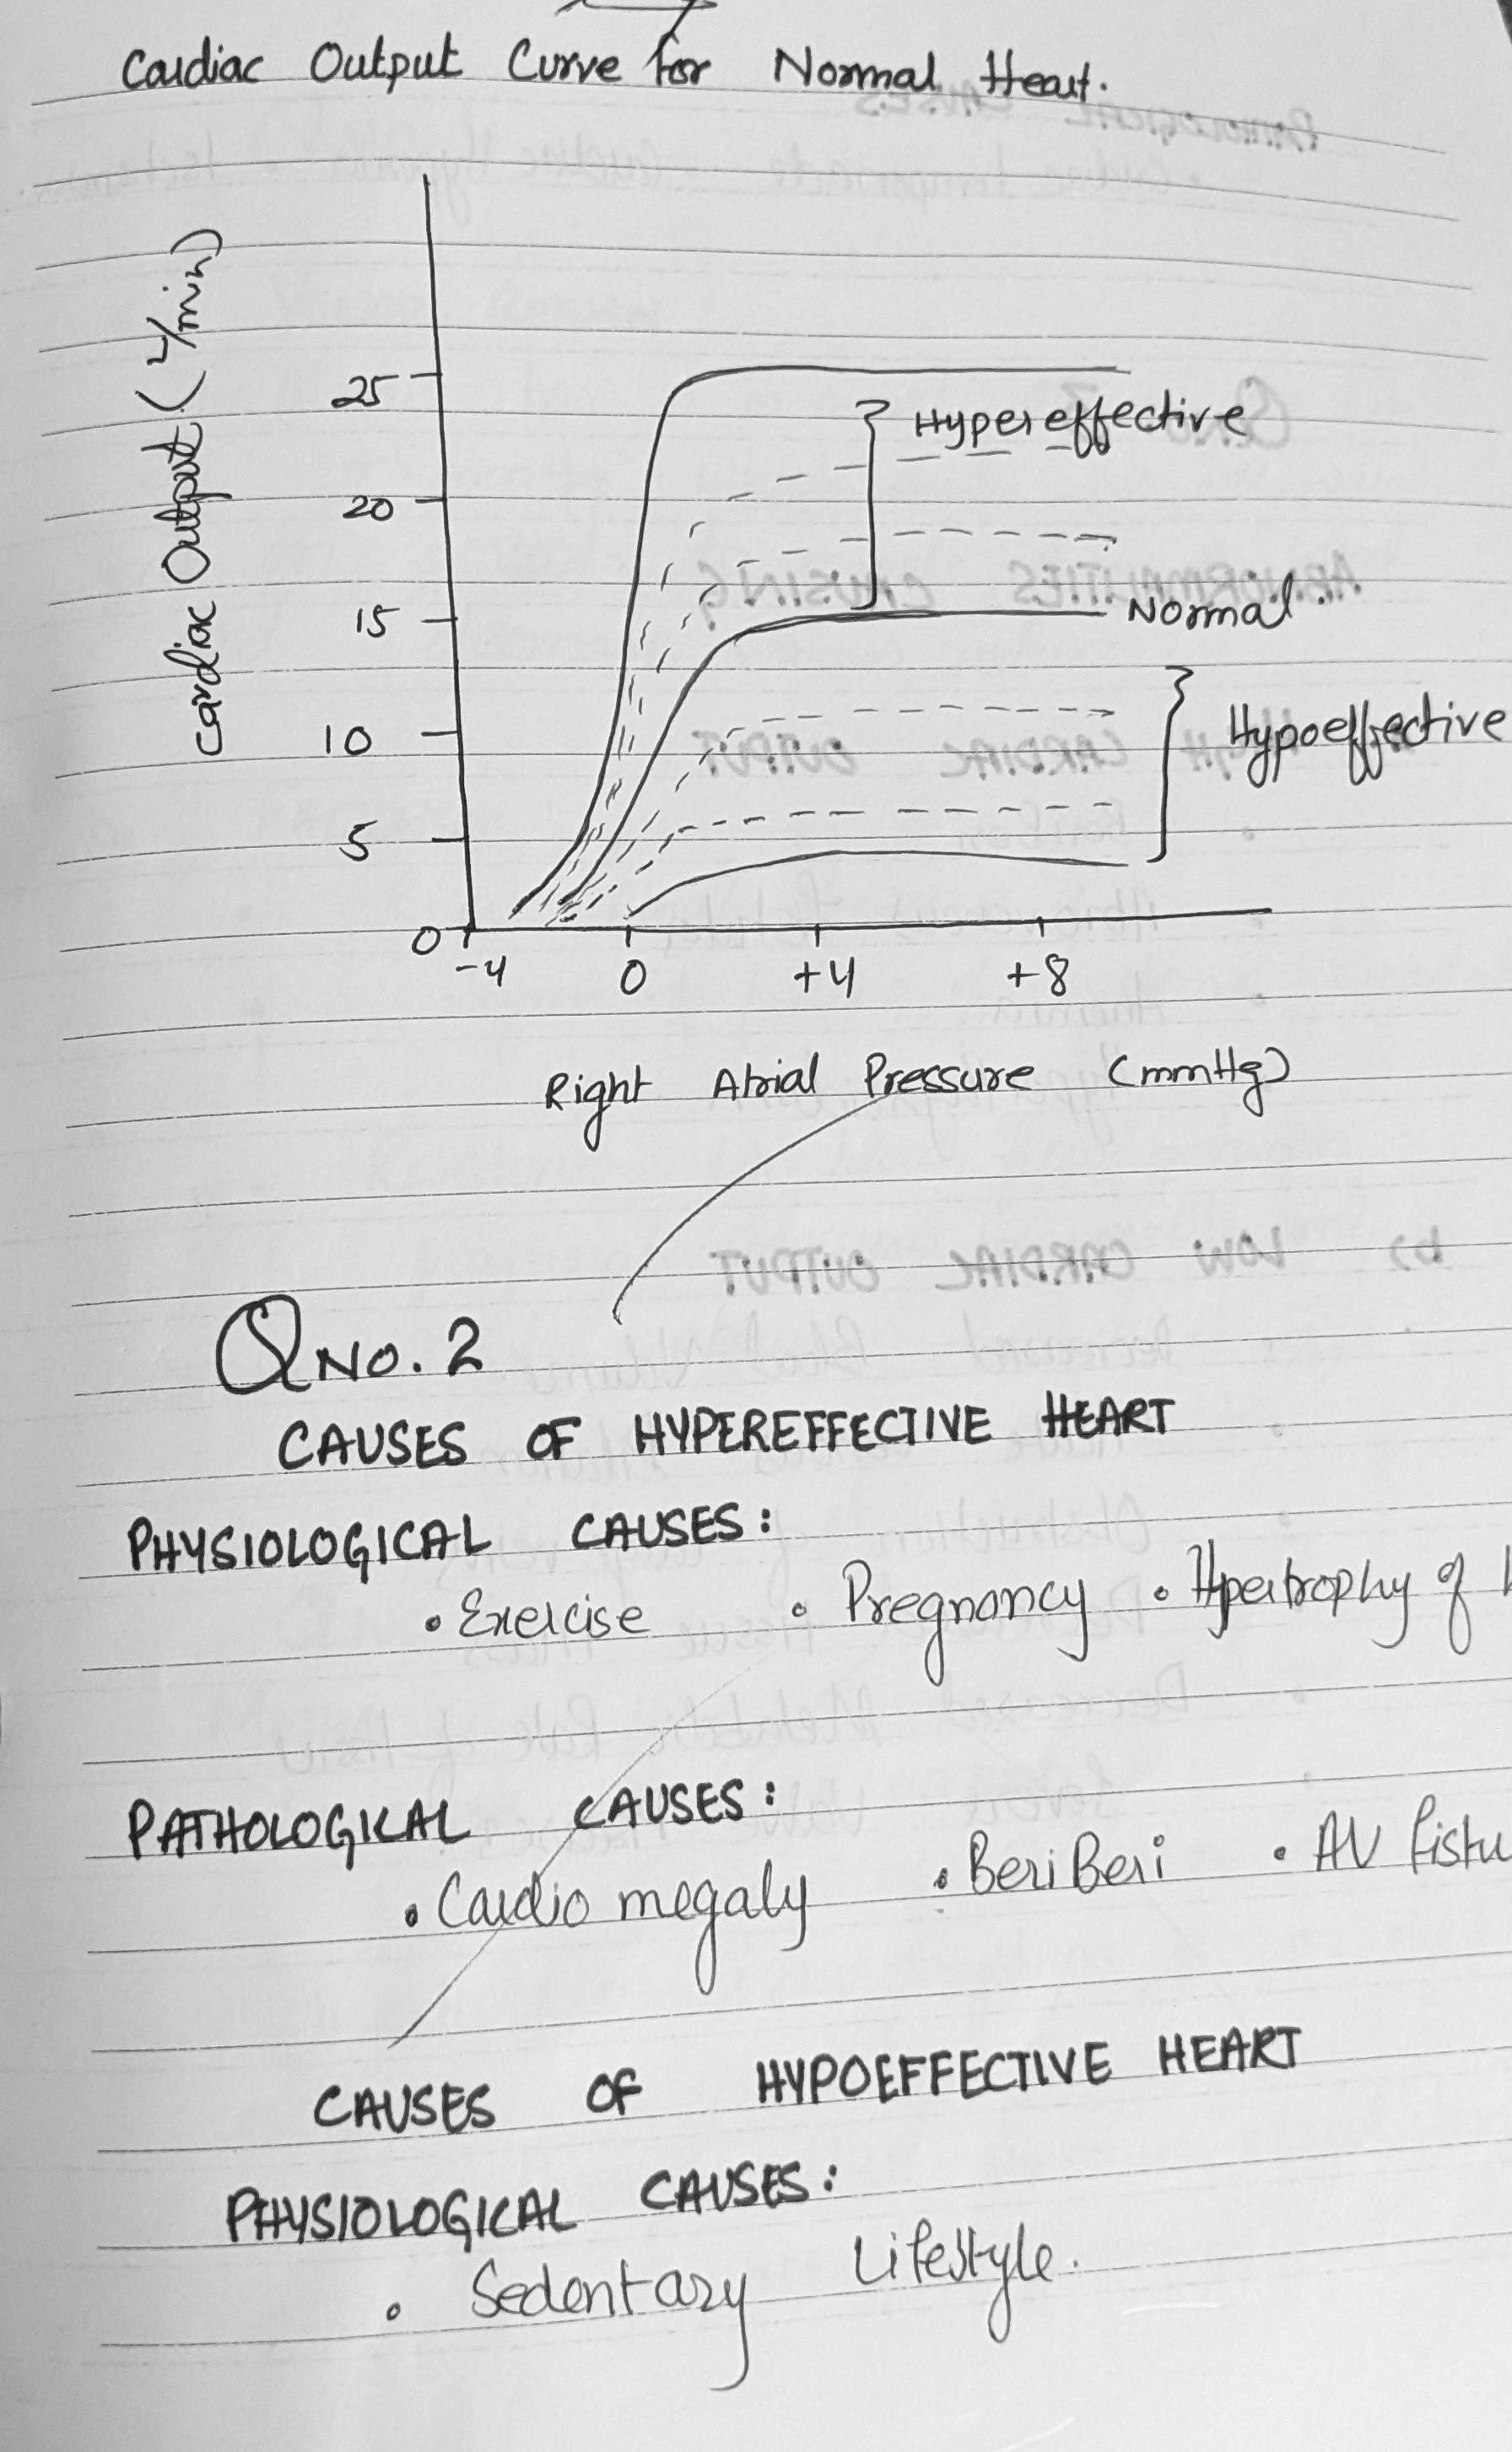 Cardiac Output Curve for Normal Heart.
Cardiac Output (L/min)
25
Hypereffective
20
15
Normal
10
Hypoeffective
5
0
-4 0 +4 +8
Right Atrial Pressure (mmHg)
Q NO. 2
CAUSES OF HYPEREFFECTIVE HEART
PHYSIOLOGICAL CAUSES:
• Exercise • Pregnancy • Hpertrophy of
PATHOLOGICAL CAUSES:
• Cardio megaly • Beri Beri • AV fistu
CAUSES OF HYPOEFFECTIVE HEART
PHYSIOLOGICAL CAUSES:
• Sedentary Lifestyle.